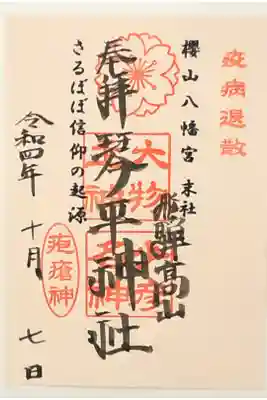 疫病退散
櫻山八幡宮 末社
飛騨高山
大物
奉拝
琴平神社
さるぼぼ信仰の起源
疱瘡神
令和四年 十月 七日